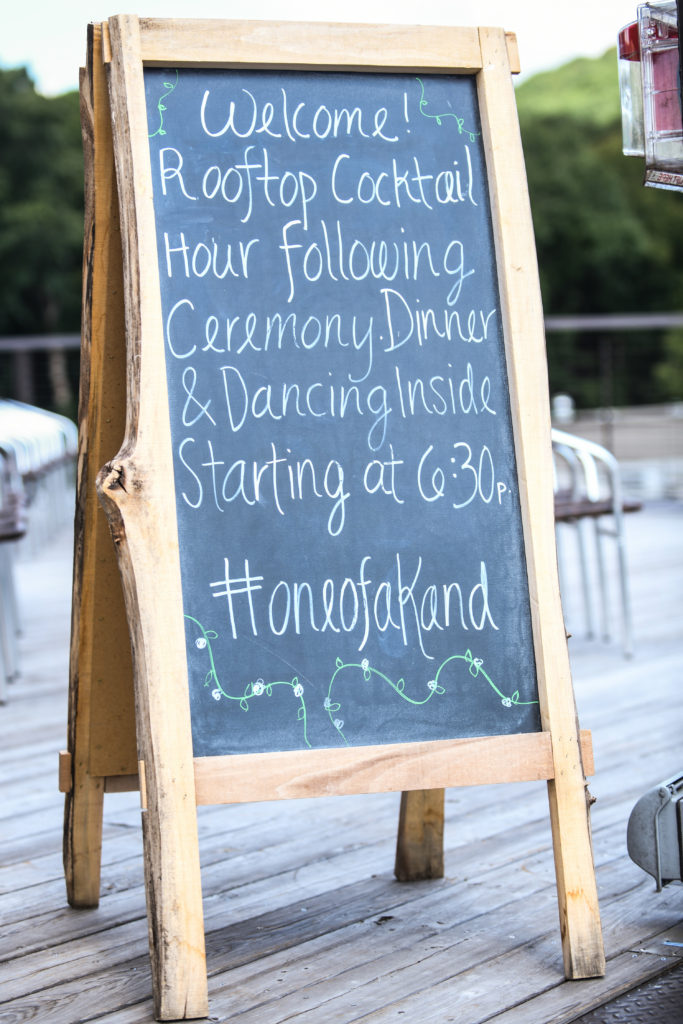 Welcome!
Rooftop Cocktail
Hour following
Ceremony. Dinner
& Dancing Inside
Starting at 6:30p.
#oneofaKand